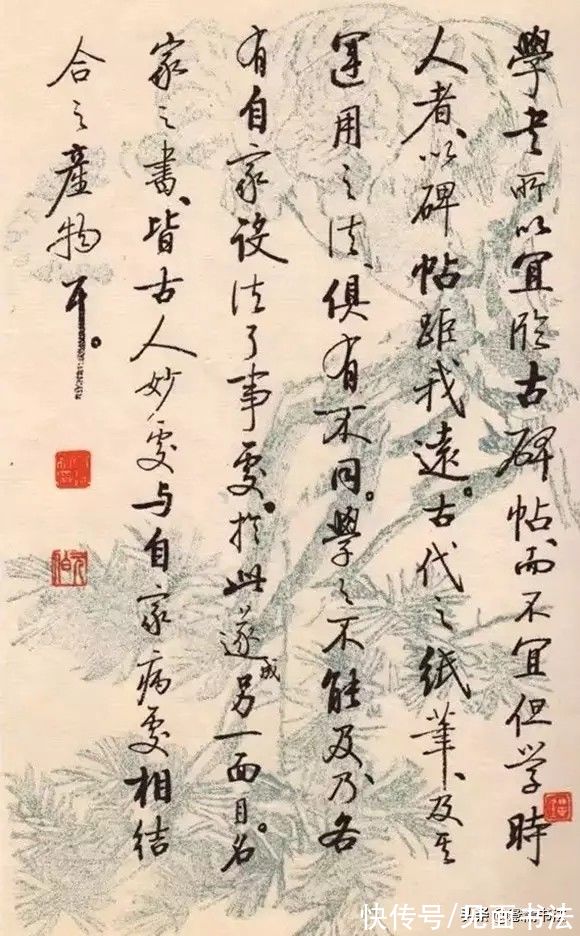 學書所以宜臨古碑帖、而不宜但学時
人者、以碑帖距我遠。古代之紙筆、及其
運用之法、俱有不同。學之不能及、乃各
有自家设法了事處。於此遂成另一面目。名
家之書、皆古人妙處与自家病處相结
合之產物耳。
快传号/见面书法